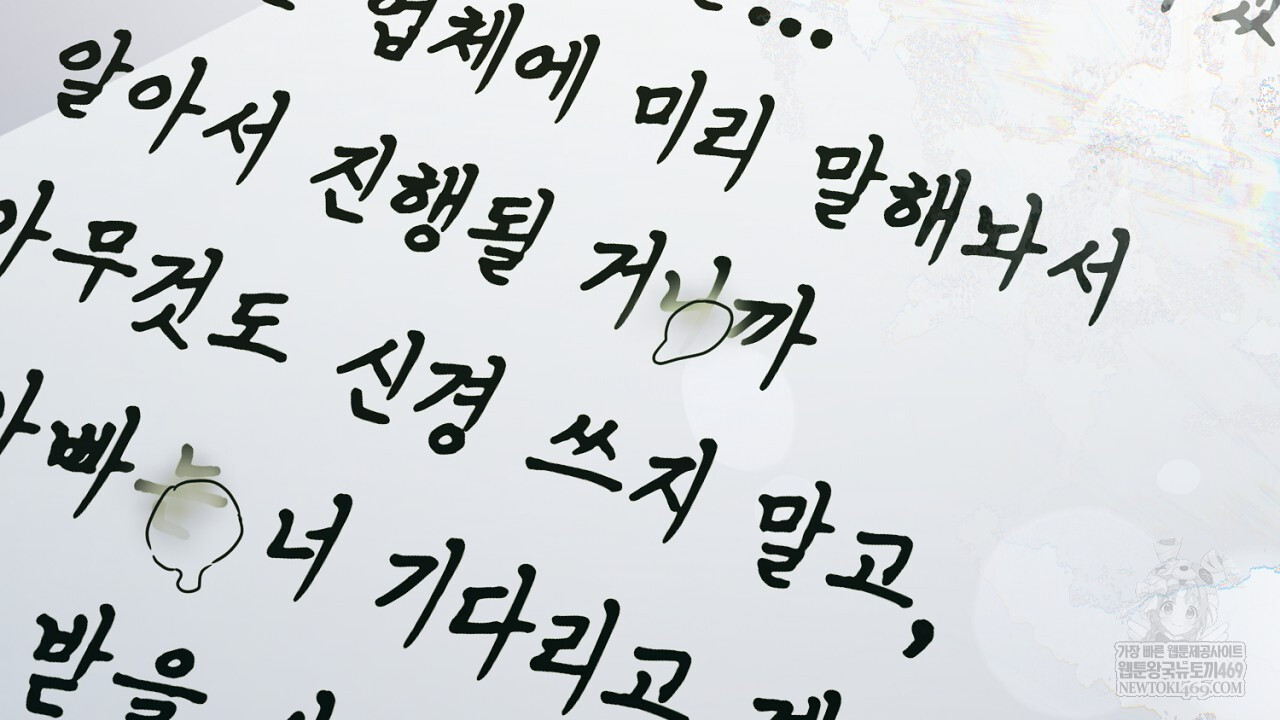 업체에 미리 말해놔서
알아서 진행될 거니까
아무것도 신경 쓰지 말고,
아빠는 너 기다리고
받을
가장 빠른 웹툰제공사이트
웹툰왕국뉴토끼469
NEWTOKI469.COM